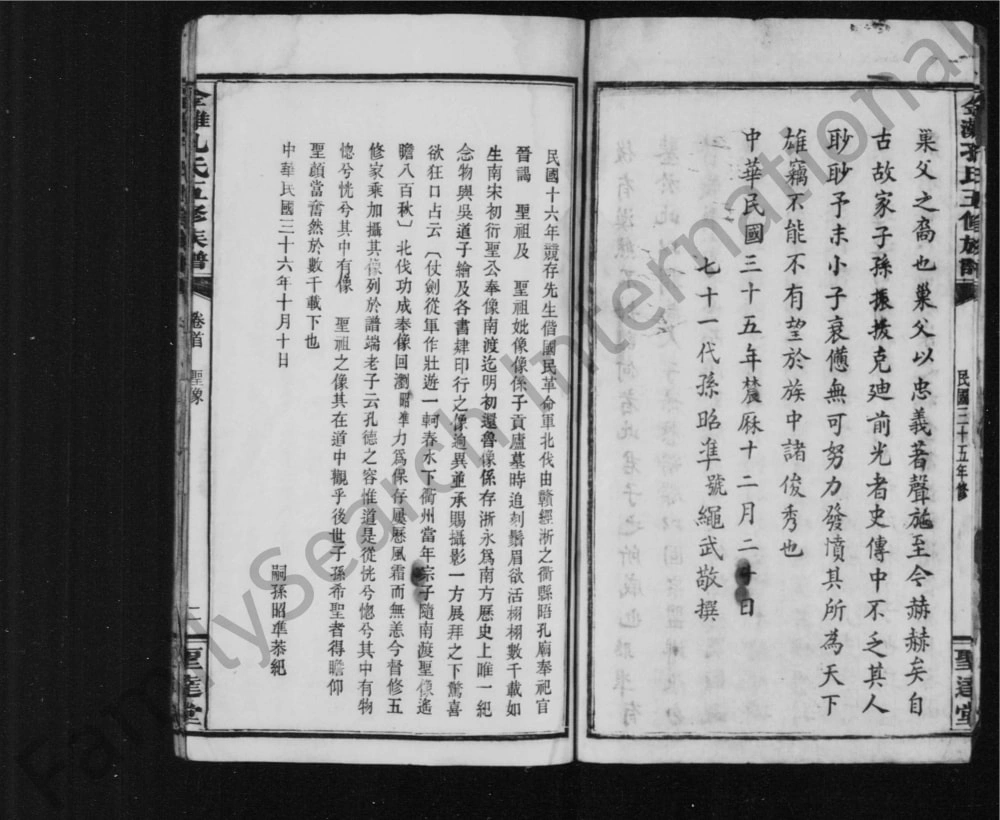 巢父之裔也巢父以忠義著聲施至今赫赫矣自
古故家子孫振拔克廸前光者史傳中不乏其人
眇眇予末小子衰憊無可努力發憤其所為天下
雄竊不能不有望於族中諸俊秀也
中華民國三十五年農厤十二月二十日
七十一代孫昭準號繩武敬撰
民國三十五年修
聖達堂
民國十六年競存先生偕國民革命軍北伐由贛經浙之衢縣晤孔廟奉祀官
晉謁 聖祖及 聖祖妣像像係子貢廬墓時追刻鬚眉欲活栩栩數千載如
生南宋初衍聖公奉像南渡迄明初還魯像係存浙永為南方歷史上唯一紀
念物與吳道子繪及各書肆印行之像迥異並承賜攝影一方展拜之下驚喜
欲狂口占云〔仗劍從軍作壯遊一軻春水下衢州當年宗子隨南渡聖像遙
瞻八百秋〕北伐功成奉像回瀏昭準力為保存屢歷風霜而無恙今督修五
修家乘加攝其像列於譜端老子云孔德之容惟道是從恍兮惚兮其中有物
惚兮恍兮其中有像 聖祖之像其在道中觀乎後世子孫希聖者得瞻仰
聖顏當奮然於數千載下也
中華民國三十六年十月十日
嗣孫昭準恭紀
孔氏五修族譜
卷首
聖像
二
聖達堂
FamilySearch International
FamilySearch International